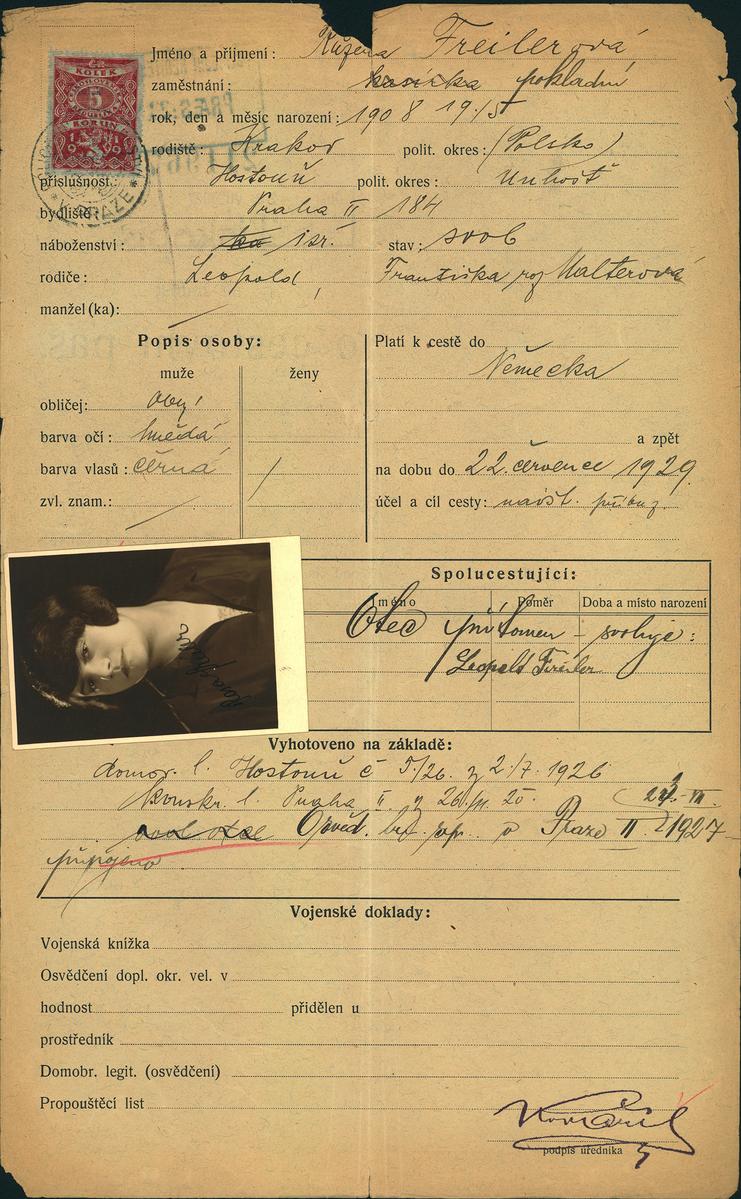 Jméno a příjmení: Růžena Freilerová
zaměstnání: pokladní
rok, den a měsíc narození: 1908 19/5
rodiště: Krakov polit. okres: (Polsko)
příslušnost: Hostouň polit. okres: Unhošť
bydliště: Praha II 184
náboženství: isr. stav: svob
rodiče: Leopold, Františka roz Malterová
manžel(ka):
Popis osoby:
muže ženy
obličej: obyč
barva očí: hnědá
barva vlasů: černá
zvl. znam.:
Platí k cestě do
Německa
a zpět
na dobu do 22. července 1929
účel a cíl cesty: navšt. příbuz.
Spolucestující:
Jméno Poměr Doba a místo narození
Otec přítomen – svoluje:
Leopold Freiler
Vyhotoveno na základě:
domov. l. Hostouň č 5/26. z 2./7. 1926
konskr. l. Praha II
Osvěd. bez. v Praze II 1927
připojeno
Vojenské doklady:
Vojenská knížka
Osvědčení dopl. okr. vel. v
hodnost přidělen u
prostředník
Domobr. legit. (osvědčení)
Propouštěcí list
podpis úředníka
KOLEK
5
KORUN
V PRAZE